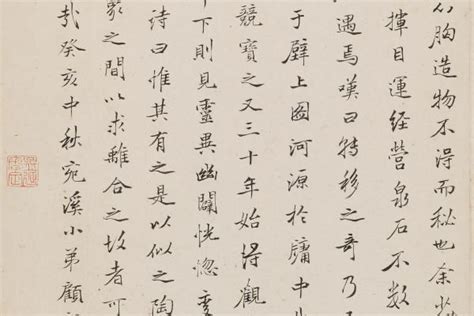 胸造物不得而秘也余少
揮目運經營泉石不數
遇焉嘆曰轉移之奇乃
于壁上圖河源於牗中
競寶之又三十年始得觀
下則見靈異幽闢恍惚變
詩曰惟其有之是以似之陶
之間以求離合之故者可
哉癸亥中秋宛溪小弟顧